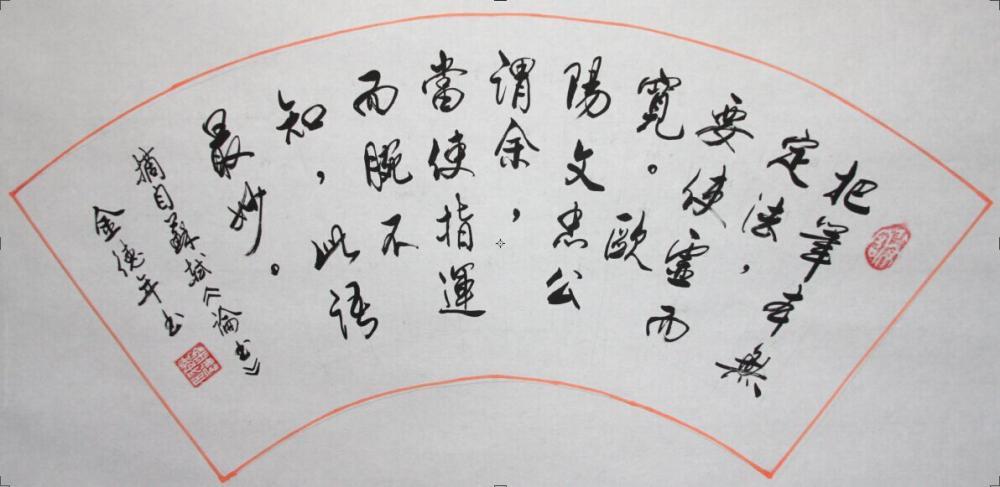 把筆本無
定法，
要使虛而
寬。歐
陽文忠公
謂余，
當使指運
而腕不
知，此語
最妙。
摘自蘇軾《論书》
金德年书